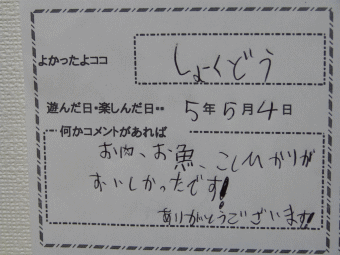 よかったよココ しょくどう
遊んだ日・楽しんだ日・・ 5年5月4日
何かコメントがあれば
お肉、お魚、こしひかりが
おいしかったです!
ありがとうございます!